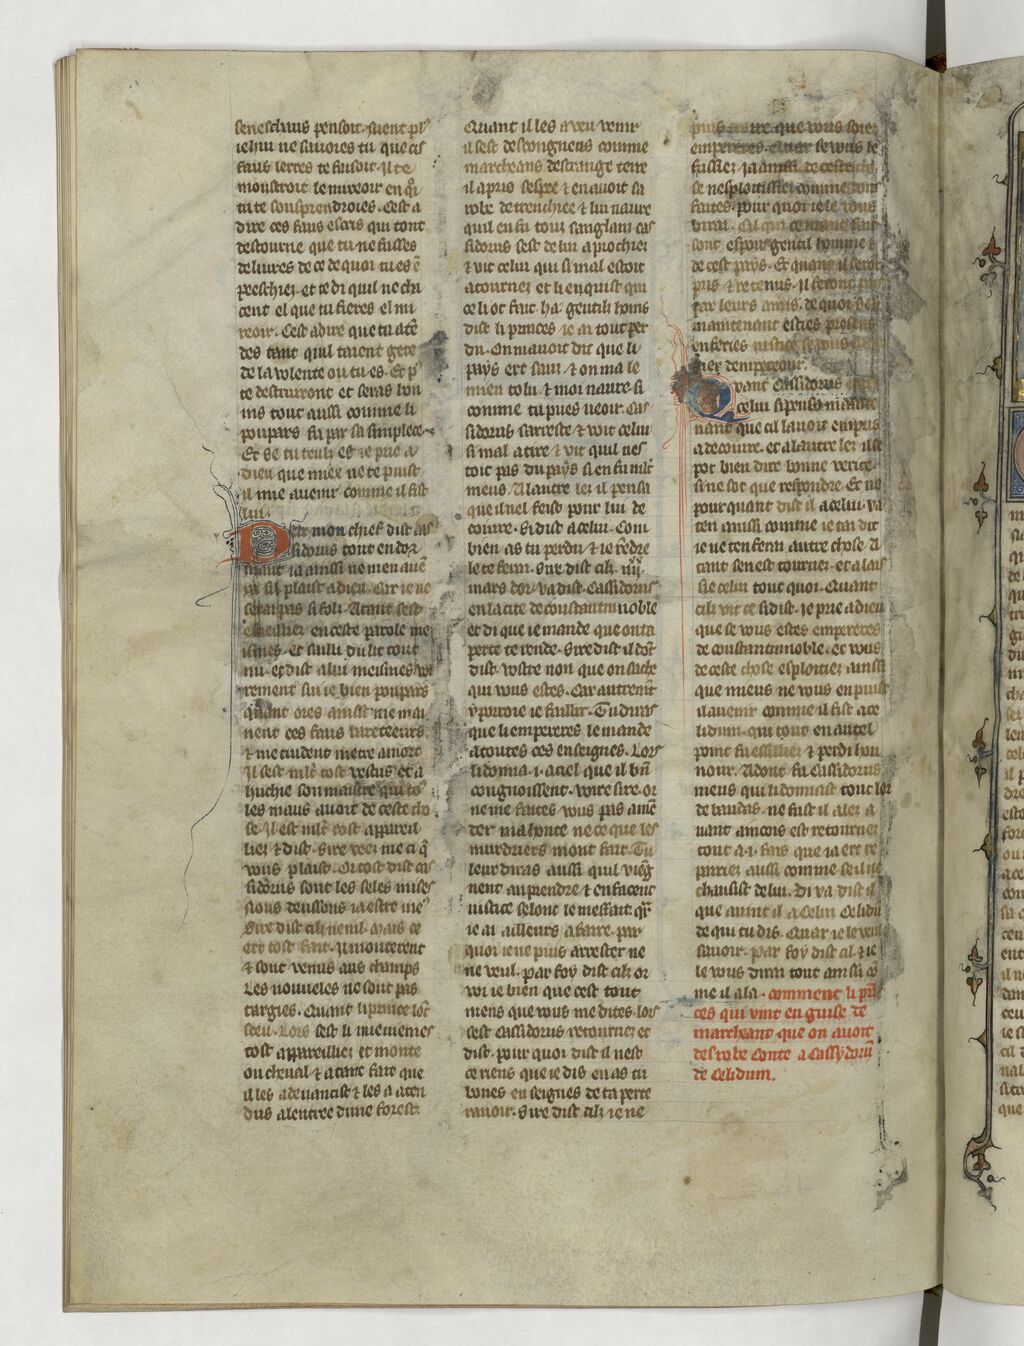 seneschaus pensoit suent pl'
ie lui ne sauoies tu que cis
faus lerres te faisoit. Il te
moustroit le mireoir en q̃i
tu te sousprendroies. Cest a
dire ces faus escris qui tont
destourne que tu ne fusses
deliures de ce de quoi tu es ẽ
peeschiez. et te di quil ne chi
cent el que tu fieres el mi
reoir. Cest a dire que tu atẽ
des tant quil taient gete
de la volente ou tu es. Et p
te destruiront et seras hon
nis tout aussi comme li
poupars fu par sa simplece
Et se tu teuls es ie prie a
dieu que miex ne te puist
il mie auenir comme il fist
lui.
Par mon chief dist cas
sidorus tout en dor
mant ia ainssi ne men auẽ
ra sil plaist a dieu. Car ie ne
serai pas si fols. Atant sest
esueilliez en ceste parole me
ismes. et sailli du lit tout
nu. et dist a lui meismes vo
irement sui ie bien poupars
quant ores ainssi me mai
nent ces faus bareteeurs
⁊ me cuident metre a mort
Il sest ml't tost vestus et a
huchie son maistre qui to'
les maus auoit de ceste cho
se. Il est ml't tost appareil
liez ⁊ dist. Sire veez me ci q̃
vous plaist. Or tost dist cas
sidorus sont les seles mises
Nous deussons ia estre me'
Sire dist cilz nenil. Mais ce
ert tost fait. Il monterent
⁊ sont venus aus champs
Les nouueles ne sont pas
targies. Quant li prince lõt
sceu. Lors sest li miememes
tost appareilliez et monte
ou cheual ⁊ a tant fait que
il les adeuancist ⁊ les a aten
dus a lentree dune forest.
Quant il les a veu venir
il sest descongneus comme
marcheans destrange terre
il a pris sespee ⁊ en auoit sa
robe detrenchiee ⁊ lui naure
quil en fu touz sanglanz cas
sidorus sest de lui aprochiez
⁊ vit celui qui si mal estoit
atournez et li enquist qui
ce li ot fait. ha. gentilz homs
dist li princes ie ai tout per
du. On mauoit dit que li
pays ert saus ⁊ on ma le
mien tolu ⁊ moi naure si
comme tu pues veoir. Cas
sidorus sarreste ⁊ voit celui
si mal atire ⁊ vit quil nes
toit pas du pays si en fu ml't
meus. A lautre lez il pensa
que il nel feist pour lui de
couure. Si dist a celui. Com
bien as tu perdu ⁊ ie t'rẽdre
le te ferai. Sire dist cilz .iiij.
mars dor. va dist Cassidorus
en la cite de constantinnoble
et di que ie mande que on ta
perte te rende. Sire dist il dõt
dist. vostre non que on sache
qui vous estes. Car autremẽt
y porroie ie faillir. Tu diras
que li empereres le mande
a toutes ces enseignes. Lors
li donna .i. aciel que il bñ
congnoissent. voire sire. or
ne me faites vous pas amẽ
der ma honte ne ce que les
murdriers mont fait. Tu
leur diras aussi quil viẽg
nent au prendre ⁊ en facent
iustice selonc le meffait q̃r
ie ai ailleurs a faire. par
quoi ie ne puis arrester ne
ne veul. par foy dist cilz or
voi ie bien que cest tout
niens que vous me dites. lors
sest Cassidorus retournez et
dist. pour quoi dist il nest
ce riens que ie dis en as tu
bones enseignes de ta perte
rauoir. Sire dist cilz ie ne
puis croire que vous soiez
empereres. Quar se vous le
fussiez ia ainssi de ceste cho
se nesploitissiez comme vous
faites. pour quoi ie le vous
dirai. Cil qui ce mont fait
sont espoir gentil homme ⁊
de cest pays. Et quant il seront
pris ⁊ retenus. Il seront
par leurs amis. de quoi se
maintenant estiez presens
en feries iustice se vous
nez dempereour.
Quant Cassidorus
celui si pensa maintenant
nant que cil lauoit empris
a decoiure. et a lautre lez il se
pot bien dire bonne verite.
si ne sot que respondre. Et ne
pourquant dist il a celui. va
ten ainssi comme ie tai dit
ie ne ten ferai autre chose. A
tant sen est tournez. et a lais
sie celui tout quoi. Quant
cilz vit ce si dist. ie prie a dieu
que se vous estes empereres
de constantinnoble. et vous
de ceste chose esploitiez ainssi
que mieus ne vous en puist
il auenir comme il fist a ce
lidum. qui tout en autel
point fu essilliez ⁊ perdi hon
nour. Adont fu Cassidorus
meus qui li donnast tout lor
de baudas. ne fust il alez a
uant ancois est retournez
tout a .i. fais que ia ert re
pairiez aussi comme se il ne
chausist de lui. Di va dist il
que auint il a Celui Celidũ
de qui tu dis. Quar ie le veul
sauoir. Par foy dist cil ⁊ ie
le vous dirai tout ainssi cõ
me il ala. comment li prĩ
ces qui vint en guise de
marcheant que on auoit
desrobe Conte a Cassydorũ
de Celidum.